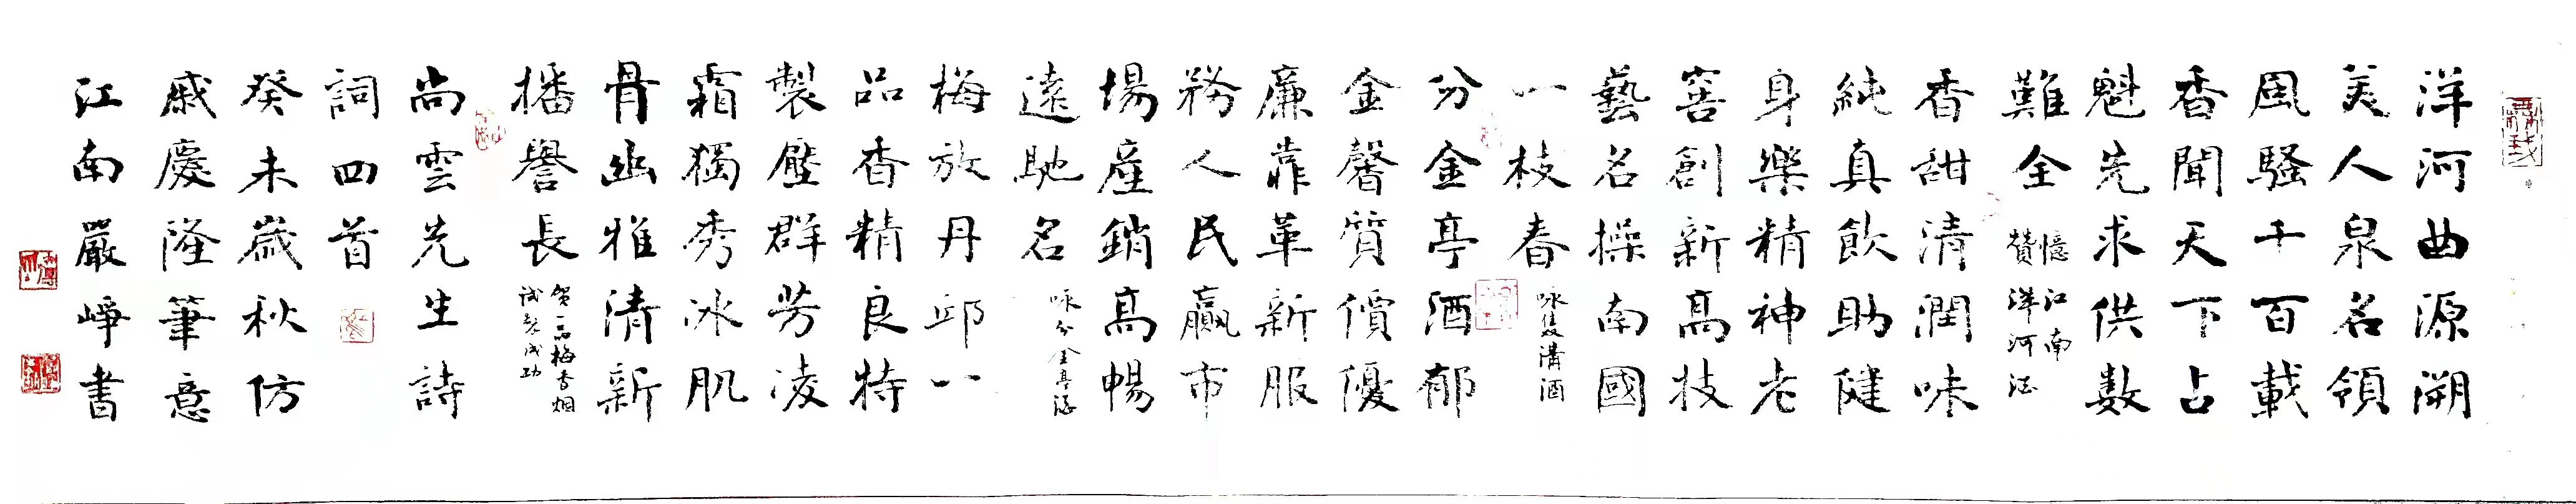 洋河曲源溯
美人泉名領
風騷千百載
香聞天下占
魁先求供數
難全
憶江南
贊洋河酒
香甜清潤味
純真飲助健
身樂精神老
窖創新高技
藝名操南國
一枝春
咏雙溝酒
分金亭酒郁
金馨質價優
廉靠革新服
務人民贏市
場產銷高暢
遠馳名
咏分金亭酒
梅放丹邱一
品香精良特
製壓群芳凌
霜獨秀冰肌
骨幽雅清新
播譽長
賀一品梅香烟
試製成功
尚雲先生詩
詞四首
癸未歲秋仿
戚慶隆筆意
江南嚴崢書